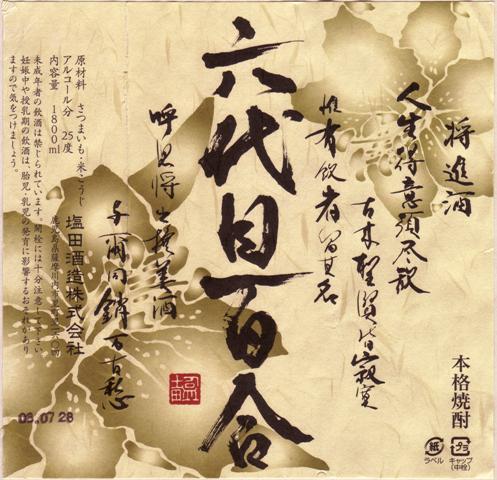 将進酒
人生得意須尽歓
古来聖賢皆寂寞
惟有飲者留其名
六代目百合
呼児将出換美酒
与爾同銷万古愁
本格焼酎
紙
ラベル
キャップ
(中栓)
原材料 さつまいも・米・こうじ
アルコール分 25度
内容量 1800ml
塩田酒造株式会社
未成年者の飲酒は禁じられています。開栓には十分注意して下さい。
妊娠中や授乳期の飲酒は、胎児・乳児の発育に影響するおそれがあり
ますので気をつけましょう。
03.07.28